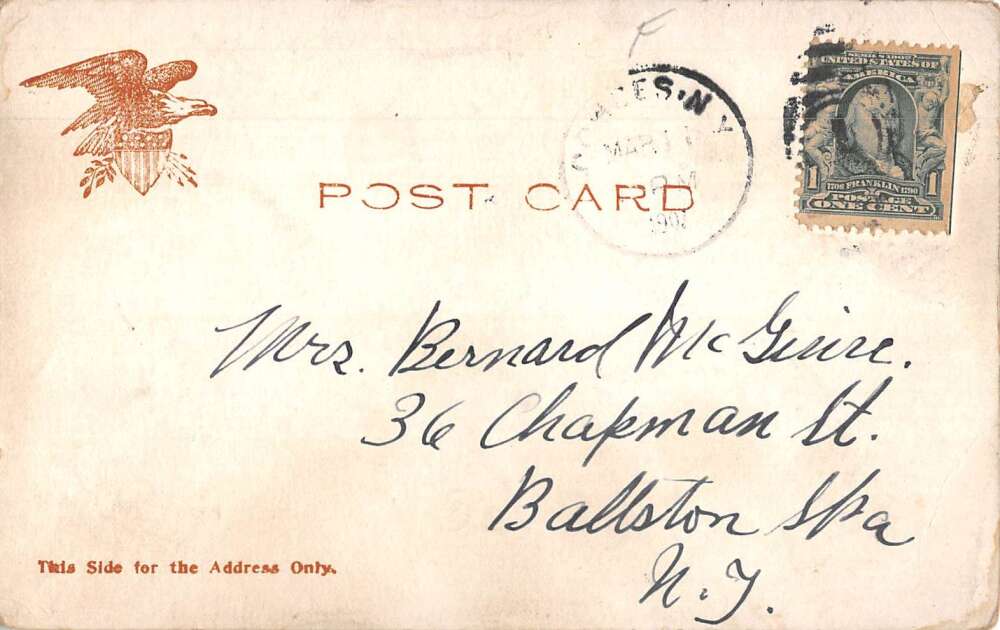 F
N.Y.
MAR
PM
SERIES 1902
UNITED STATES OF
AMERICA
1 1708 FRANKLIN 1790 1
POSTAGE
ONE CENT
POST CARD
Mrs. Bernard McGuire.
36 Chapman St.
Ballston Spa
N.Y.
This Side for the Address Only.